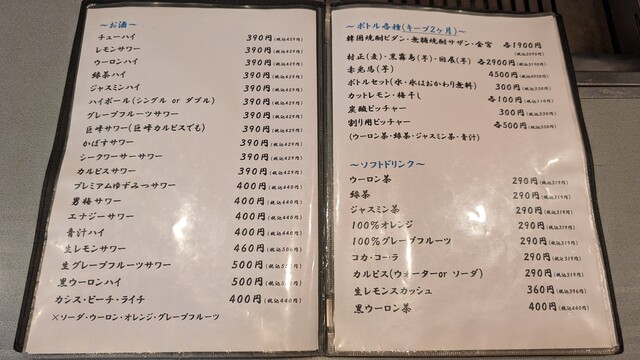 ～お酒～
チューハイ 390円(税込429円)
レモンサワー 390円(税込429円)
ウーロンハイ 390円(税込429円)
緑茶ハイ 390円(税込429円)
ジャスミンハイ 390円(税込429円)
ハイボール(シングル or ダブル) 390円(税込429円)
グレープフルーツサワー 390円(税込429円)
巨峰サワー(巨峰カルピスでも) 390円(税込429円)
かぼすサワー 390円(税込429円)
シークワーサーサワー 390円(税込429円)
カルピスサワー 390円(税込429円)
プレミアムゆずみつサワー 400円(税込440円)
男梅サワー 400円(税込440円)
エナジーサワー 400円(税込440円)
青汁ハイ 400円(税込440円)
生レモンサワー 460円(税込506円)
生グレープフルーツサワー 500円
黒ウーロンハイ 500円
カシス・ピーチ・ライチ 400円(税込440円)
×ソーダ・ウーロン・オレンジ・グレープフルーツ
～ボトル各種(キープ2ヶ月)～
韓国焼酎ビダン・無糖焼酎サザン・金宮 各1900円
(税込2090円)
村正(麦)・黒霧島(芋)・田原(芋) 各2900円(税込3190円)
赤兎馬(芋) 4500円(税込4950円)
ボトルセット(水・氷はおかわり無料) 300円(税込330円)
カットレモン・梅干し 各100円(税込110円)
炭酸ピッチャー 300円(税込330円)
割り用ピッチャー 各500円(税込550円)
(ウーロン茶・緑茶・ジャスミン茶・青汁)
～ソフトドリンク～
ウーロン茶 290円(税込319円)
緑茶 290円(税込319円)
ジャスミン茶 290円(税込319円)
100%オレンジ 290円(税込319円)
100%グレープフルーツ 290円(税込319円)
コカ・コーラ 290円(税込319円)
カルピス(ウォーターor ソーダ) 290円(税込319円)
生レモンスカッシュ 360円(税込396円)
黒ウーロン茶 400円(税込440円)